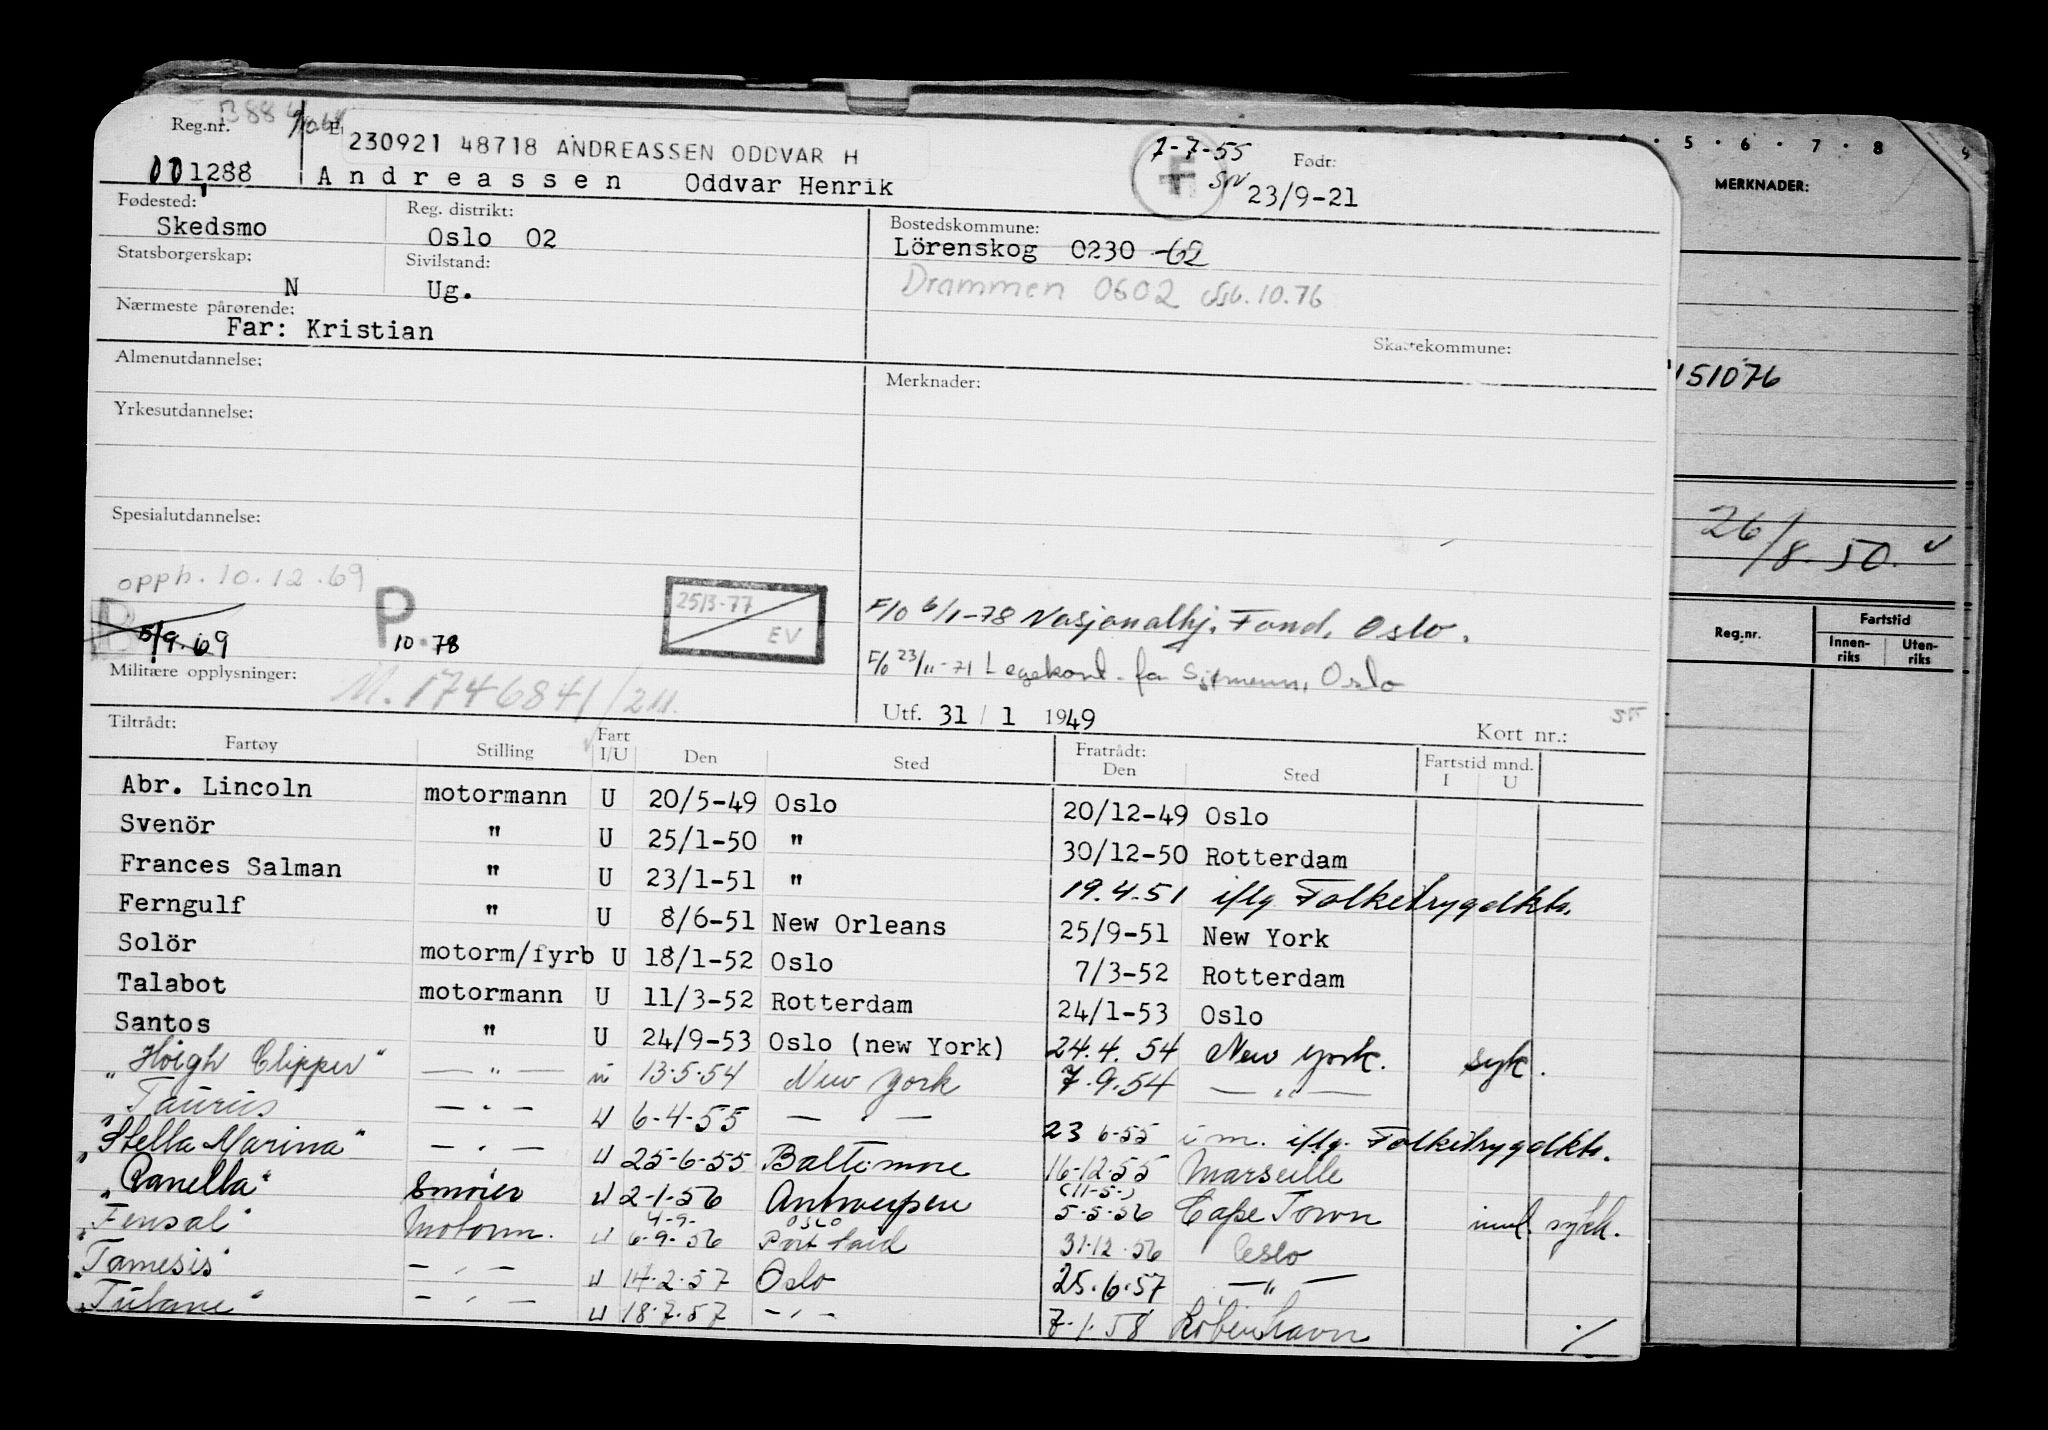 B 88 4
Reg.nr.
230921 48718 ANDREASSEN ODDVAR H
001288 Andreassen Oddvar Henrik
7-7-55
Født:
23/9-21
Fødested:
Skedsmo
Reg. distrikt:
Oslo 02
Bostedskommune:
Lörenskog 0230 -62
Drammen 0602 10.76
Statsborgerskap:
N
Sivilstand:
Ug.
Nærmeste pårørende:
Far: Kristian
Skattekommune:
Almenutdannelse:
Merknader:
Yrkesutdannelse:
Spesialutdannelse:
opph. 10.12.69
B 5/9.69
P. 10 78
25/3-77
EV
F/O 6/1-78 Nasjonalhj. Fond, Oslo.
F/O 23/11-71 Legekont. for Sjømenn, Oslo
Militære opplysninger:
M. 1746841/211.
Utf. 31 / 1 1949
Kort nr.:
Tiltrådt:
Fartøy Stilling Fart I/U Den Sted Fratrådt: Den Sted Fartstid mnd. I U
Abr. Lincoln motormann U 20/5-49 Oslo 20/12-49 Oslo
Svenör " U 25/1-50 " 30/12-50 Rotterdam
Frances Salman " U 23/1-51 " 19.4.51 iflg Folketrygdkts.
Ferngulf " U 8/6-51 New Orleans 25/9-51 New York
Solör motorm/fyrb U 18/1-52 Oslo 7/3-52 Rotterdam
Talabot motormann U 11/3-52 Rotterdam 24/1-53 Oslo
Santos " U 24/9-53 Oslo (new York) 24.4.54 New York. syk.
"Höigh Clipper" — " — u 13.5.54 New York 7.9.54 — " —
"Taurus" — " — U 6-4-55 — " — 23 6-55 i m. iflg. Folketrygdkts.
"Stella Marina" — " — U 25-6-55 Baltimore 16-12-55 Marseille
"Ranella" Smører U 2-1-56 Antwerpen (11-5-) 5-5-56 Cape Town inkl. sykh.
"Fensal" Motorm. U 4-9- 6-9-56 Oslo Port Said 31.12.56 Oslo
"Tamesis" — " — U 14-2-57 Oslo 25.6.57 — " —
"Tubane" — " — U 18-7-57 — " — 7.1.58 København ./
5 . 6 . 7 . 8
MERKNADER:
151076
26/8.50.
Reg.nr.
Fartstid
Innen-riks
Uten-riks